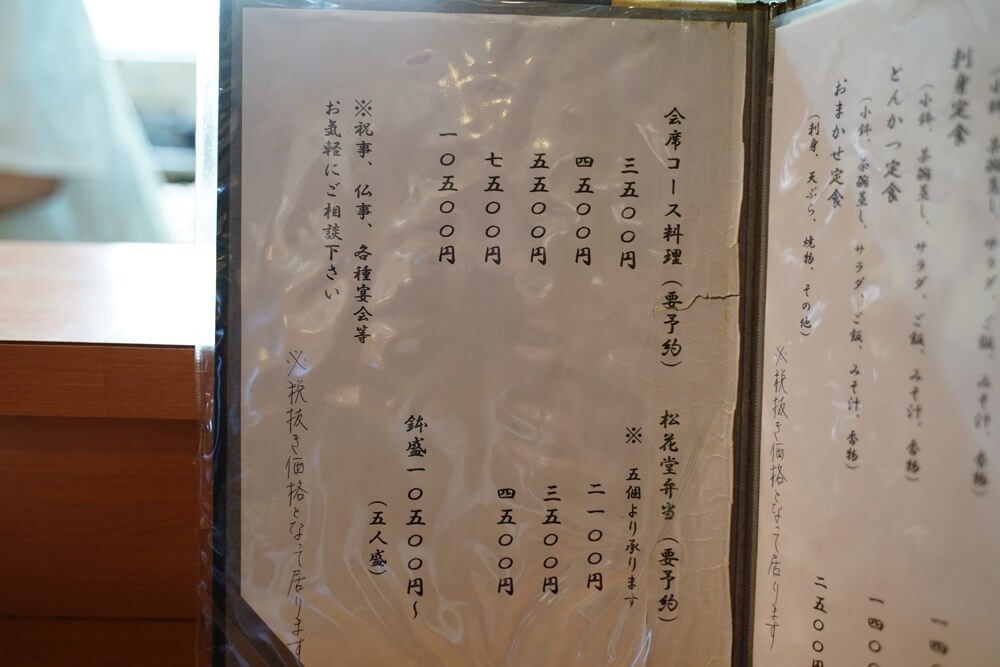 刺身定食
(小鉢、茶碗蒸し、サラダ、ご飯、みそ汁、香物)
とんかつ定食
(小鉢、茶碗蒸し、サラダ、ご飯、みそ汁、香物)
おまかせ定食
(刺身、天ぷら、焼物、その他)
二五〇〇円
※税抜き価格となって居ります
会席コース料理(要予約)
三五〇〇円
四五〇〇円
五五〇〇円
七五〇〇円
一〇五〇〇円
※祝事、仏事、各種宴会等
お気軽にご相談下さい
松花堂弁当(要予約)
※ 五個より承ります
二一〇〇円
三五〇〇円
四五〇〇円
鉢盛一〇五〇〇円〜
(五人盛)
※税抜き価格となって居ります